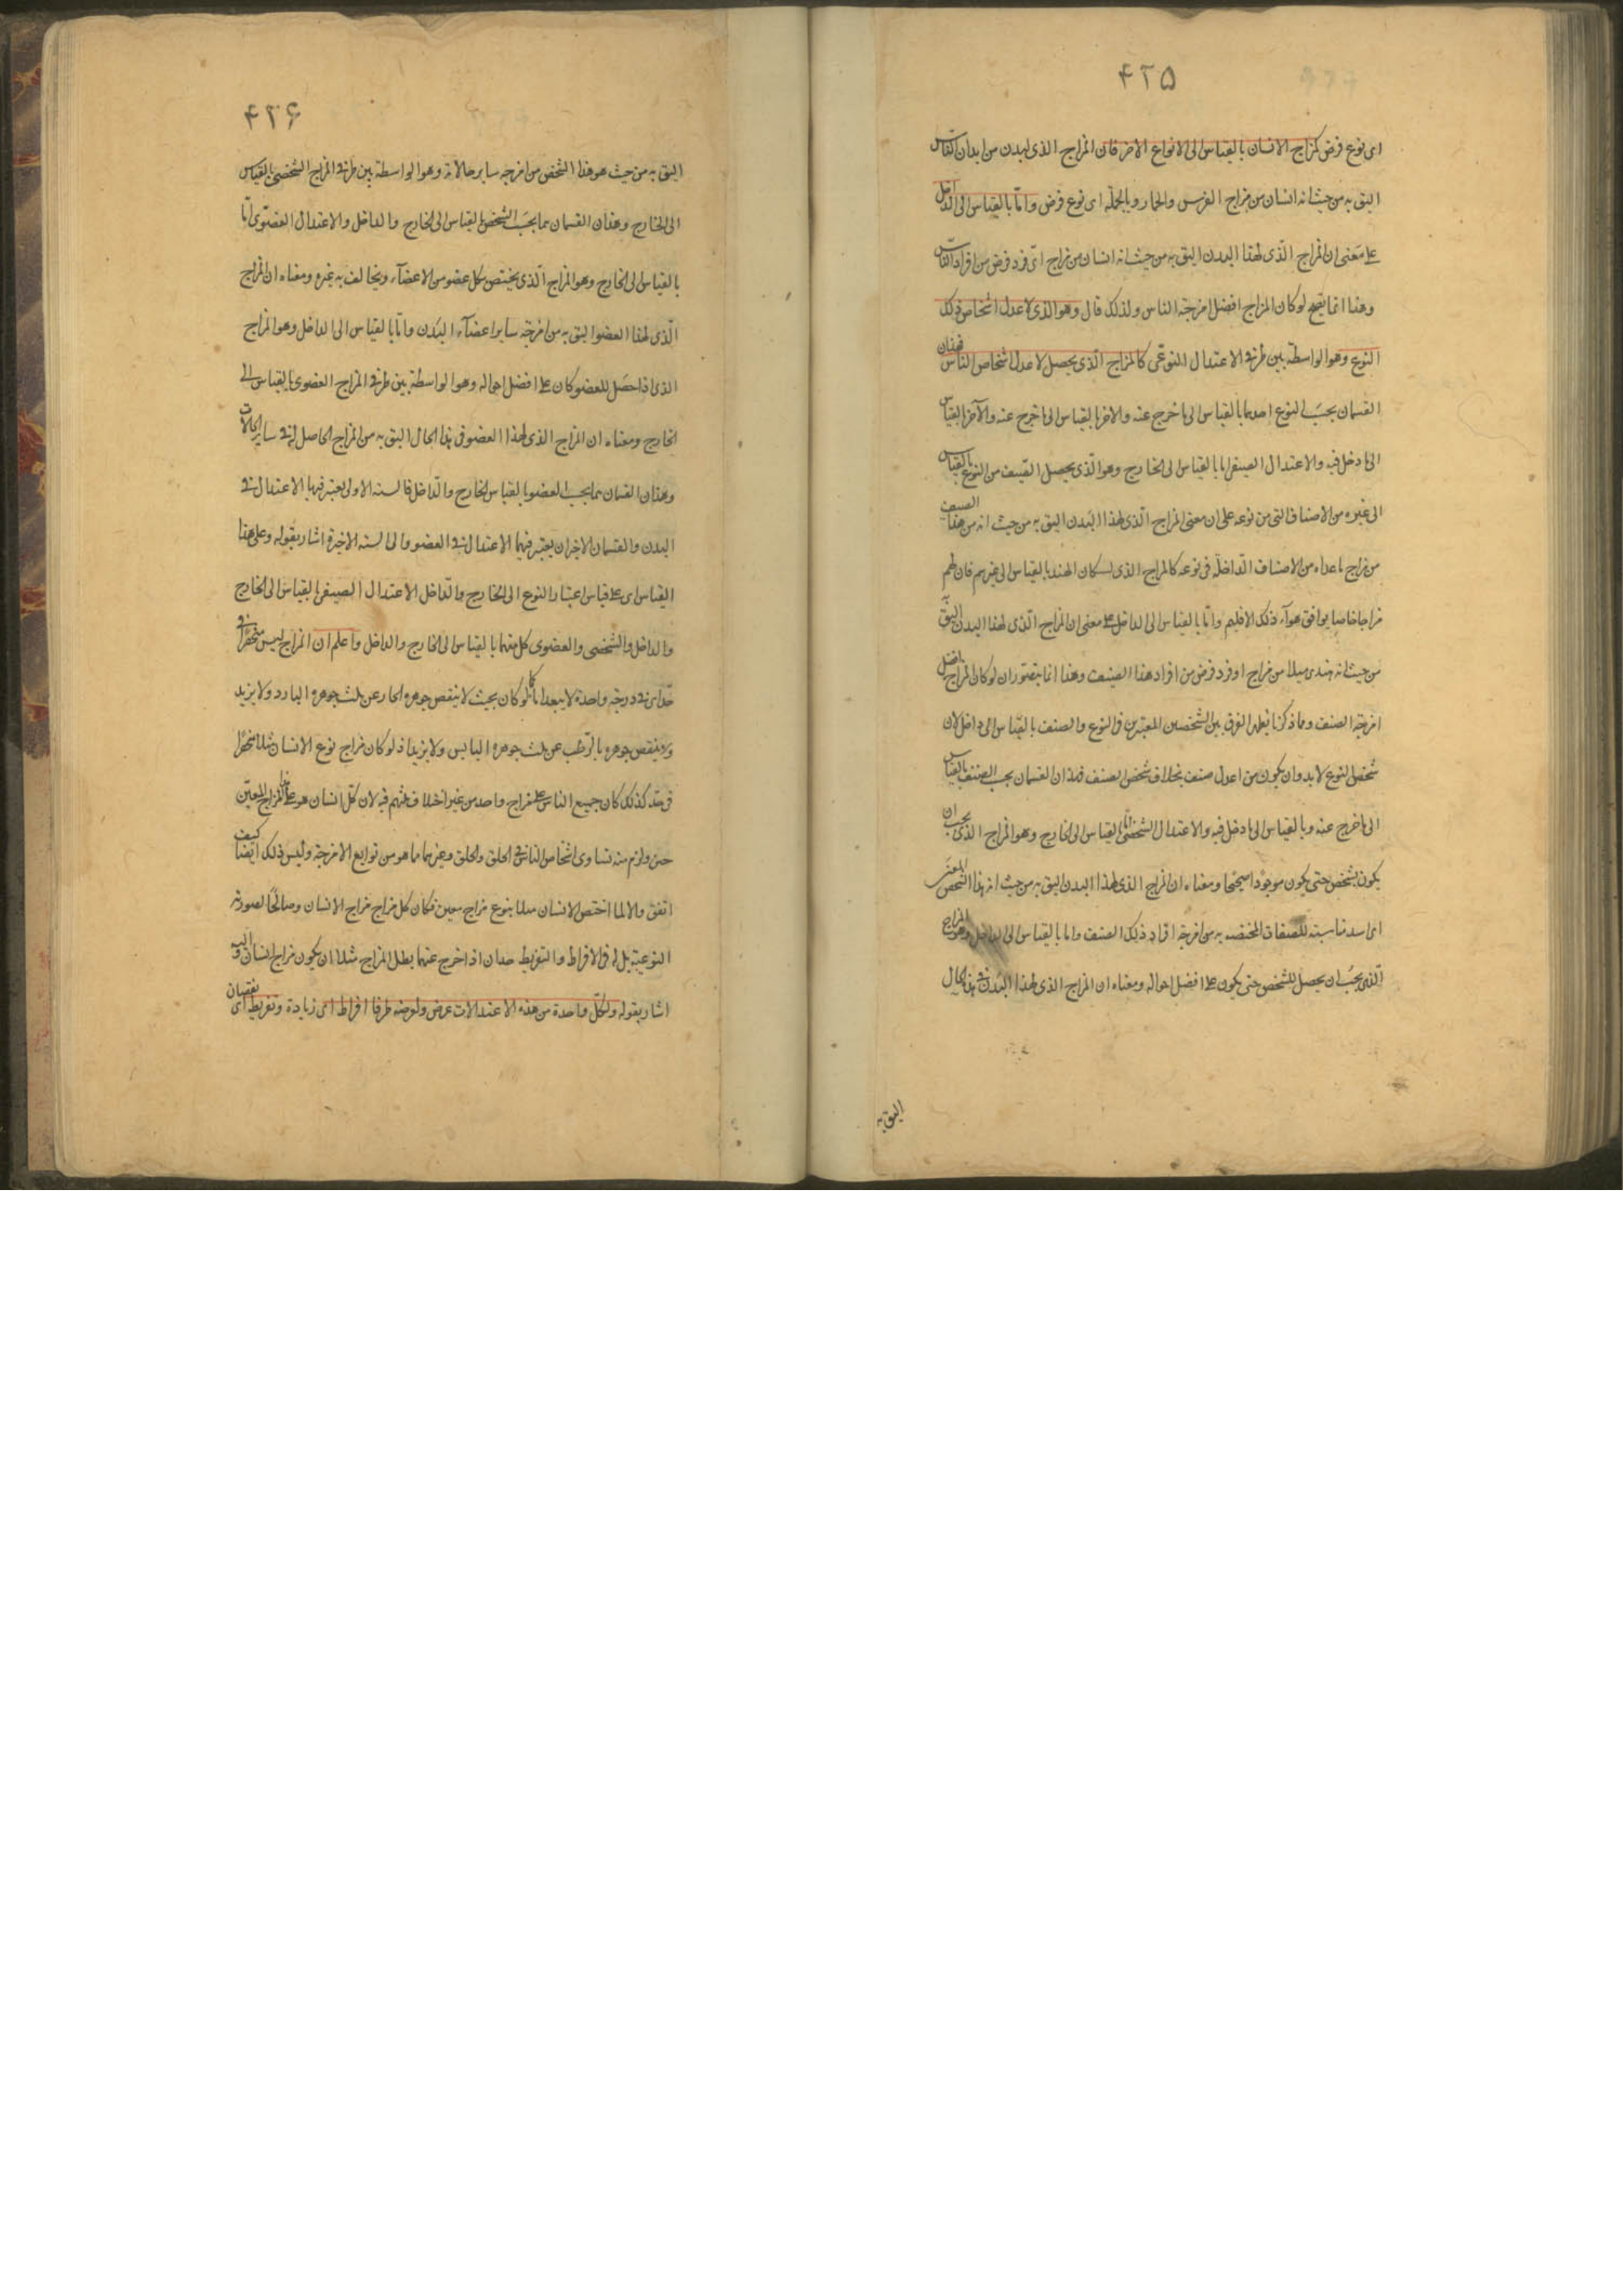 ۴۲۵
ای نوع فرض کمزاج الانسان بالقیاس الی الانواع الاخر فان المزاج الذی لبدن من ابدان الناس
الیق به من حیث انه انسان من مزاج الفرس والحمار وبالجملة ای نوع فرض واما بالقیاس الی الداخل
علی معنی ان المزاج الذی لهذا البدن الیق به من حیث انه انسان من مزاج ای فرد فرض من افراد الناس
وهذا انما یصح لو کان المزاج افضل امزجة الناس ولذلک قال وهو الذی لاعدل اشخاص ذلک
النوع وهو الواسطة بین طرفی الاعتدال النوعی کالمزاج الذی یحصل لاعدل اشخاص الناس فهذان
القسمان بحسب النوع احدهما بالقیاس الی ما خرج عنه والاخر بالقیاس الی ما خرج عنه والآخر بالقیاس
الی ما دخل فیه والاعتدال الصنفی اما بالقیاس الی الخارج وهو الذی یحصل الصنف من النوع بالقیاس
الی غیره من الاصناف التی من نوعه علی ان معنی المزاج الذی لهذا البدن الیق به من حیث انه من هذا الصنف
من مزاج ما عداه من الاصناف الداخلة فی نوعه کالمزاج الذی لسکان الهند بالقیاس الی غیرهم فان لهم
مزاجا خاصا یوافق هوآء ذلک الاقلیم واما بالقیاس الی الداخل علی معنی ان المزاج الذی لهذا البدن الیق به
من حیث انه هندی مثلا من مزاج ای فرد فرض من افراد هذا الصنف وهذا انما یتصور ان لو کان المزاج افضل
امزجة الصنف ومما ذکرنا یعلم الفرق بین الشخصین المعتبرین فی النوع والصنف بالقیاس الی داخل لان
شخص النوع لا بد وان یکون من اعدل صنف بخلاف شخص الصنف فهذان القسمان بحسب الصنف بالقیاس
الی ما خرج عنه وبالقیاس الی ما دخل فیه والاعتدال الشخصی اما بالقیاس الی الخارج وهو المزاج الذی یجب ان
یکون لشخص حتی یکون موجودا صحیحا ومعناه ان المزاج الذی لهذا البدن الیق به من حیث انه هذا الشخص المعین
ای اشد مناسبة للصفات المختصة به من امزجة افراد ذلک الصنف واما بالقیاس الی الداخل وهو المزاج
الذی یجب ان یحصل للشخص حتی یکون علی افضل احواله ومعناه ان المزاج الذی لهذا البدن فی هذا الحال
الیق به
۴۲۶
الیق به من حیث هو هذا الشخص من امزجة سایر حالاته وهو الواسطة بین طرفی المزاج الشخصی بالقیاس
الی الخارج وهذان القسمان بحسب الشخص بالقیاس الی الخارج والداخل والاعتدال العضوی اما
بالقیاس الی الخارج وهو المزاج الذی یختص بکل عضو من الاعضآء ویخالف به غیره ومعناه ان المزاج
الذی لهذا العضو الیق به من امزجة سایر اعضآء البدن واما بالقیاس الی الداخل وهو المزاج
الذی اذا حصل للعضو کان علی افضل احواله وهو الواسطة بین طرفی المزاج العضوی بالقیاس الی
الخارج ومعناه ان المزاج الذی لهذا العضو فی هذا الحال الیق به من المزاج الحاصل له فی سایر الحالات
وهذان القسمان مما بحسب العضو بالقیاس الخارج والداخل فالستة الاولی یعتبر فیها الاعتدال فی
البدن والقسمان الاخیران یعتبر فیهما الاعتدال فی العضو والی الستة الاخیرة اشار بقوله وعلی هذا
القیاس ای علی قیاس اعتبار النوع الی الخارج والداخل الاعتدال الصنفی بالقیاس الی الخارج
والداخل والشخصی والعضوی کل منهما بالقیاس الی الخارج والداخل واعلم ان المزاج لیس منحصرا فی
حد ای فی درجة واحدة لا یتعداها کما لو کان بحیث لا ینقص جوهره الحار عن ثلث جوهره البارد ولا یزید
ولا ینقص جوهره بالرطب عن ثلث جوهره الیابس ولا یزید اذ لو کان مزاج نوع الانسان مثلا منحصرا
فی حد کذلک کان جمیع الناس علی مزاج واحد من غیر اختلاف منهم فیه لان کل انسان هو علی هذا المزاج المعین
حین ولزم منه تساوی اشخاص الناس فی الخلق والخلق وغیرهما مما هو من توابع الامزجة ولیس ذلک ایضا کیف
اتفق والا لما اختص الانسان مثلا بنوع مزاج معین فکان کل مزاج مزاج الانسان وصالحا لصورته
النوعیة بل له فی الافراط والتفریط حدان اذا خرج عنهما بطل المزاج مثلا ان یکون مزاج انسان والیه
اشار بقوله ولکل واحدة من هذه الاعتدالات عرض ولعرضه طرفا افراط ای زیادة وتفریط ای نقصان